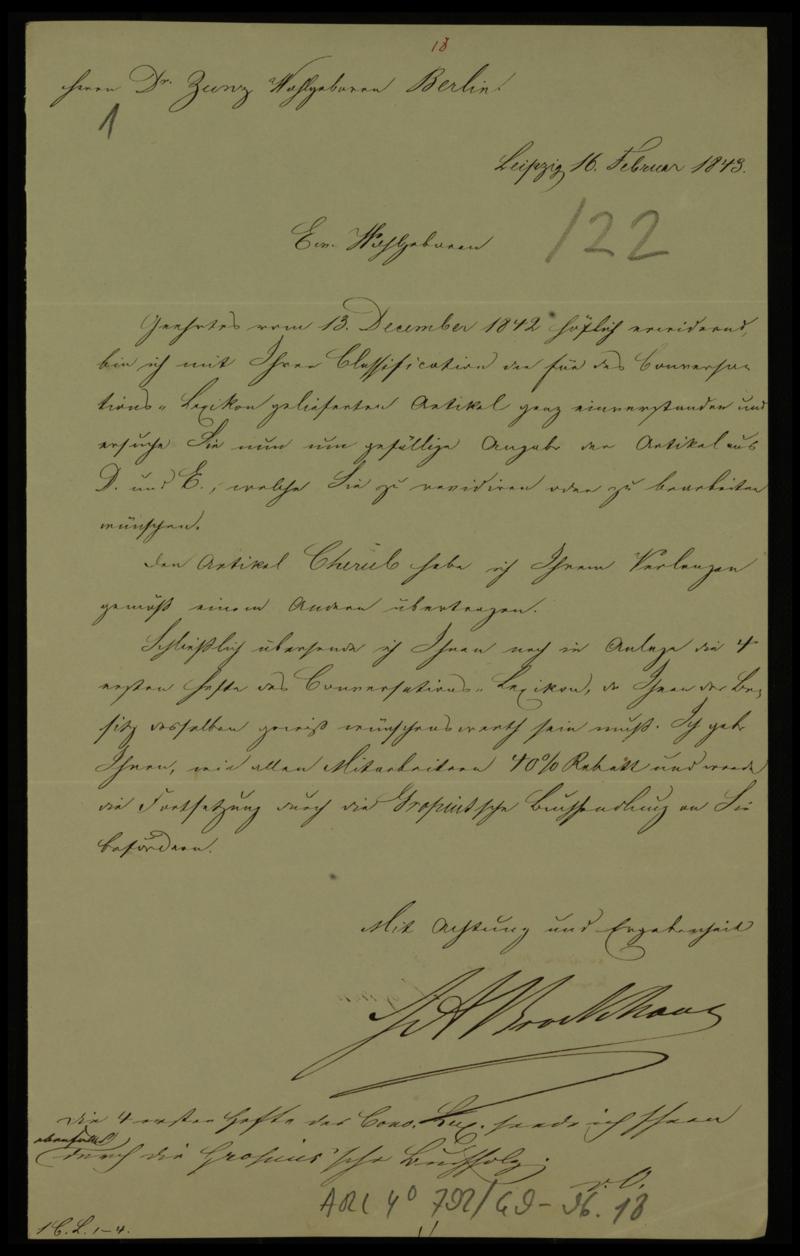 18
Herrn Dr. Zunz Wohlgeboren Berlin.
1
Leipzig 16. Februar 1843.
122
Ew. Wohlgeboren
Geehrtes vom 13. December 1842 höflich erwidernd,
bin ich mit Ihrer Classification der für das Conversa-
tions-Lexikon gelieferten Artikel ganz einverstanden und
ersuche Sie nun um gefällige Angabe der Artikel aus
D. und E., welche Sie zu revidiren oder zu bearbeiten
wünschen.
Den Artikel Cherub habe ich Ihrem Verlangen
gemäß einem Andern übertragen.
Schließlich übersende ich Ihnen noch in Anlage die 4
ersten Hefte des Conversations-Lexikon, da Ihnen der Be-
sitz desselben gewiß wünschenswerth sein muß. Ich gebe
Ihnen, wie allen Mitarbeitern 40% Rabatt und werde
die Fortsetzung durch die Gropius'sche Buchhandlung an Sie
befördern.
Mit Achtung und Ergebenheit
F A Brockhaus
Die 4 ersten Hefte des Conv. Lex. sende ich Ihnen
ebenfalls
durch die Gropius'sche Buchholg.
d. O.
ARC 4° 792/G9-36.18
1 C. L. 1-4.